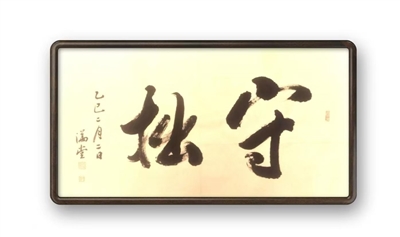 守拙
乙巳二月二日